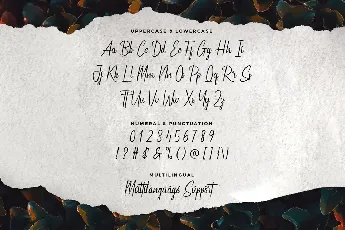 UPPERCASE & LOWERCASE
Aa Bb Cc Dd Ee Ff Gg Hh Ii
Jj Kk Ll Mm Nn Oo Pp Qq Rr Ss
Tt Uu Vv Ww Xx Yy Zz
NUMERAL & PUNCTUATION
0 1 2 3 4 5 6 7 8 9
! ? # $ & % ( ) @ [ ] \ |
MULTILINGUAL
Multilanguage Support